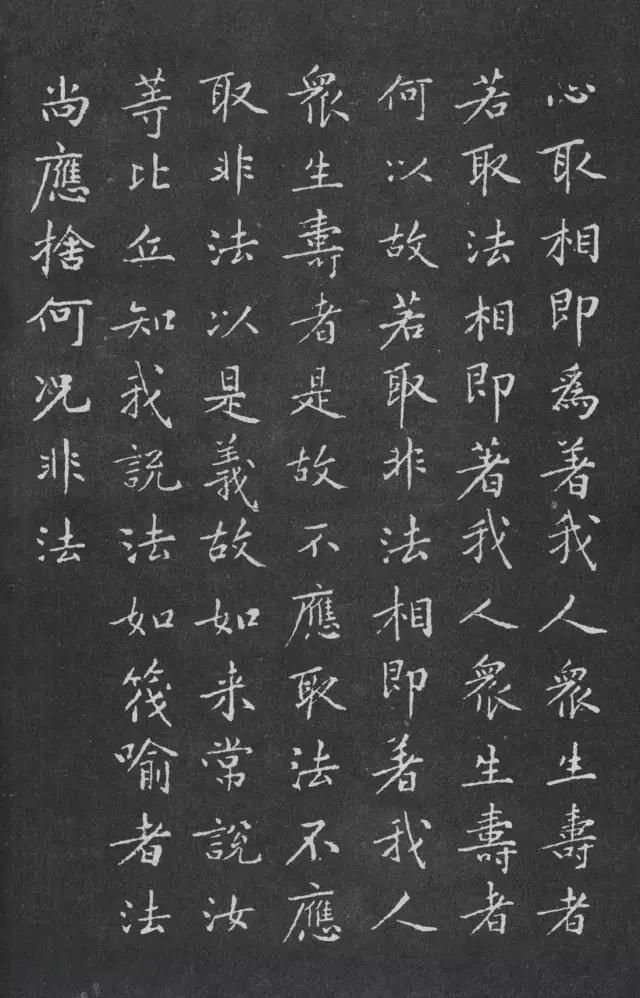 心取相即為著我人眾生壽者
若取法相即著我人眾生壽者
何以故若取非法相即著我人
眾生壽者是故不應取法不應
取非法以是義故如来常說汝
等比丘知我說法如筏喻者法
尚應捨何况非法